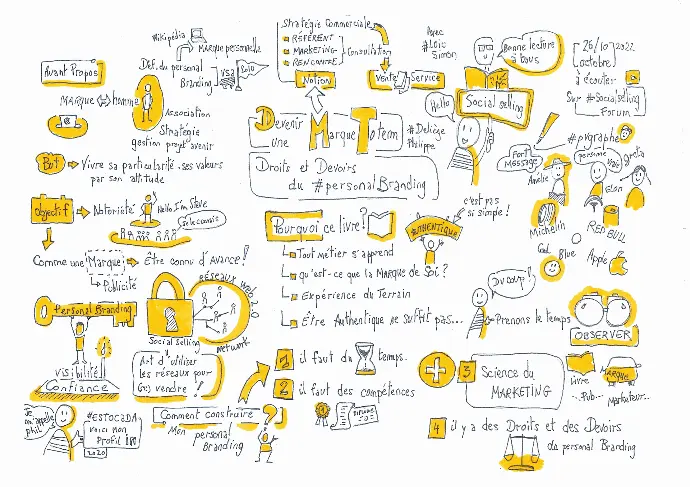 Avant Propos
MARQUE ⇔ homme
Association
Stratégie
gestion
avenir
But
Vivre sa particularité, ses valeurs
par son attitude
Objectif
Notoriété
Hello I'm Steve
Comme une Marque
Être connu d'avance!
Publicité
Personal Branding
visibilité
Confiance
Je
m'appelle
Phil
#ESTOCADA
voici mon
Profil
2020
Wikipédia
Marque personnelle
Déf. du personal
Branding
USA
Stratégie Commerciale
RÉFÉRENT
MARKETING
RENCONTRE
Consultation
Notion
Vente
Service
Devenir
une Marque Totem
Droits et Devoirs
du #personalBranding
Avec
#Loïc
Simon
Bonne lecture
à tous
Social selling
Hello
#Deliège
Philippe
26/10 2022
(octobre)
à écouter
Sur #Socialselling
Forum
#pygraphe
Fort
MESSAGE
personne
Amélie
Elon
Greta
Michelin
RED BULL
Blue
Apple
Pourquoi ce livre?
Tout métier s'apprend
qu'est-ce que la Marque de Soi?
Expérience du Terrain
Être Authentique ne suffit pas...
AUTHENTIQUE
c'est pas
si simple!
Du coup!
Prenons le temps
OBSERVER
RÉSEAUX Web 2.0
Network
Social selling
Art d'utiliser
les réseaux pour
(se) vendre!
Comment construire?
Mon personal
Branding
1 il faut du temps.
2 il faut des compétences
DIPLOME
3 Science du
MARKETING
Livre
...Pub...
MARQUE
Marketeur...
4 il y a des Droits et des Devoirs
du personal Branding